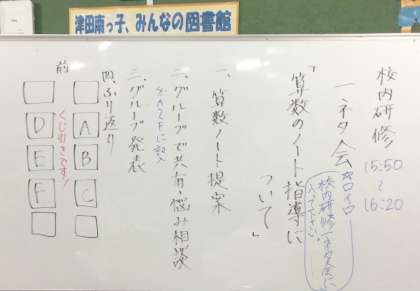 津田南っ子、みんなの図書館
校内研修
15:50
～
16:20
一ネタ会 in ロイロ
「算数のノート指導に
ついて」
一、算数ノート提案
二、グループで共有・悩み相談
三、グループ発表
四、ふり返り
前
A
B
C
D
E
F
くじ引きです!